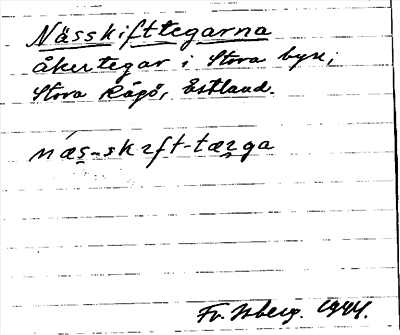 Nässkifttegarna
åkertegar i Stora byn;
Stora Rågö, Estland.
næs-skɪft-tæꭋga
Fr. Isberg. 1944.